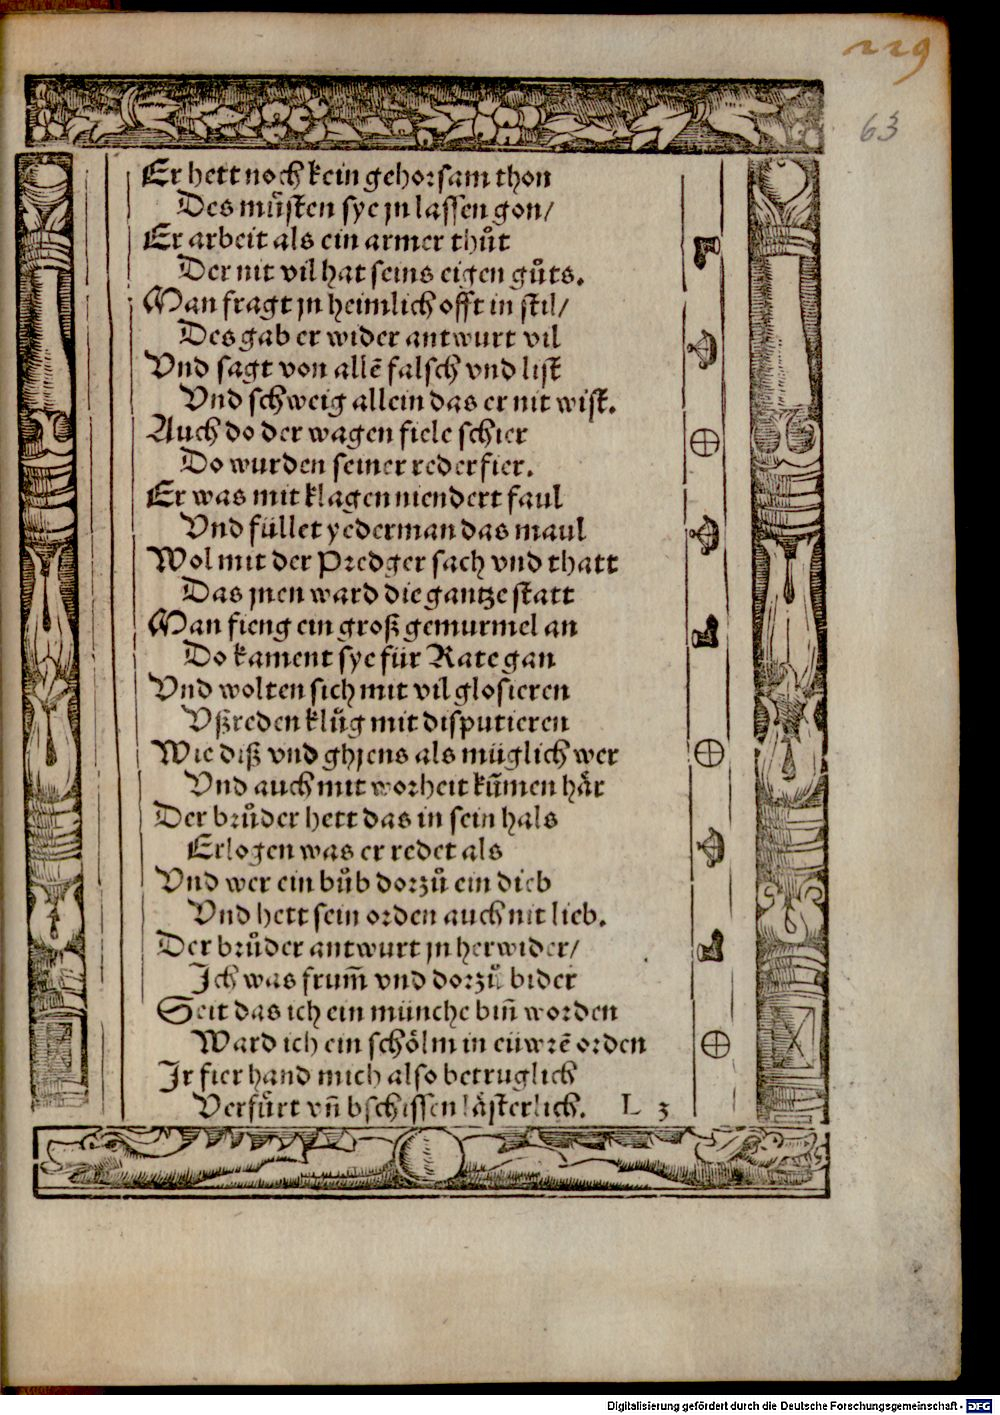 229
63
Er hett noch kein gehorsam thon
Des muͤsten sye jn lassen gon/
Er arbeit als ein armer thuͦt
Der nit vil hat seins eigen guͦts.
Man fragt jn heimlich offt in stil/
Des gab er wider antwurt vil
Vnd sagt von allē falsch vnd list
Vnd schweig allein das er nit wist.
Auch do der wagen fiele schier
Do wurden seiner reder fier.
Er was mit klagen niendert faul
Vnd füllet yederman das maul
Wol mit der Predger sach vnd thatt
Das jnen ward die gantze statt
Man fieng ein groß gemurmel an
Do kament sye für Rate gan
Vnd wolten sich mit vil glosieren
Vßreden kluͦg mit disputieren
Wie diß vnd ghjens als müglich wer
Vnd auch mit worheit kum̄en haͤr
Der bruͦder hett das in sein hals
Erlogen was er redet als
Vnd wer ein buͦb dorzuͦ ein dieb
Vnd hett sein orden auch nit lieb.
Der bruͦder antwurt jn herwider/
Ich was frum̄ vnd dorzuͦ bider
Seit das ich ein münche bin̄ worden
Ward ich ein schoͤlm in eüwrē orden
Ir fier hand mich also betruglich
Verfuͤrt vn̄ bschissen laͤsterlich. L 3
Digitalisierung gefördert durch die Deutsche Forschungsgemeinschaft - DFG